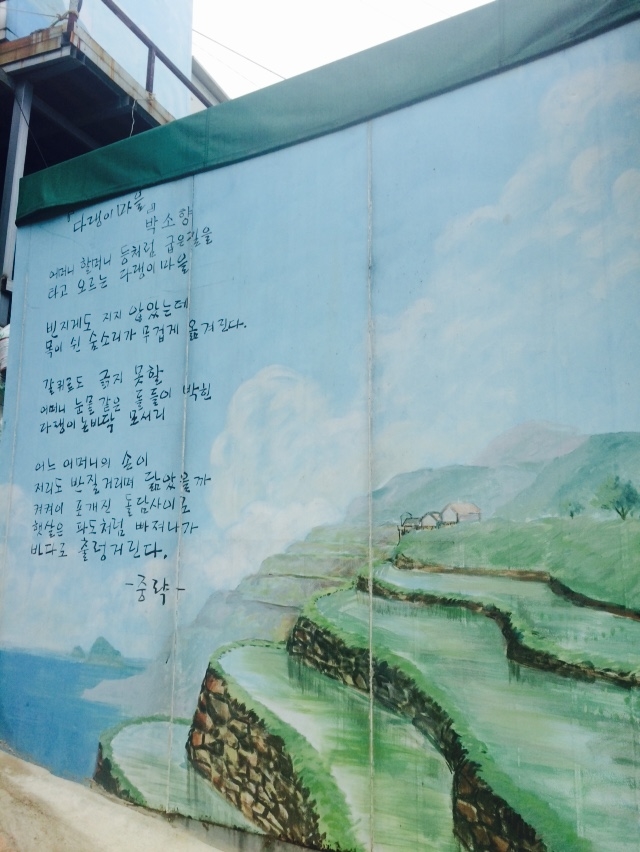 다랭이마을에
박소향
어머니 할머니 등처럼 굽은길을
타고 오르는 다랭이마을
빈지게도 지지 않았는데
목이 쉰 숨소리가 무겁게 옮겨린다.
갈퀴로도 긁지 못할
어머니 눈물 같은 돌들이 박힌
다랭이논바닥 모서리
어느 어머니의 손이
저리도 반질거리며 닮았을까
켜켜이 포개진 돌담사이로
햇살은 파도처럼 빠져나가
바다로 출렁거린다.
-중략-